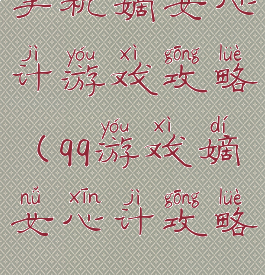 手机嫡女心
jì yóu xì gōng lüè
计游戏攻略
yóu xì dí
(qq游戏嫡
nǚ xīn jì gōng lüè
女心计攻略